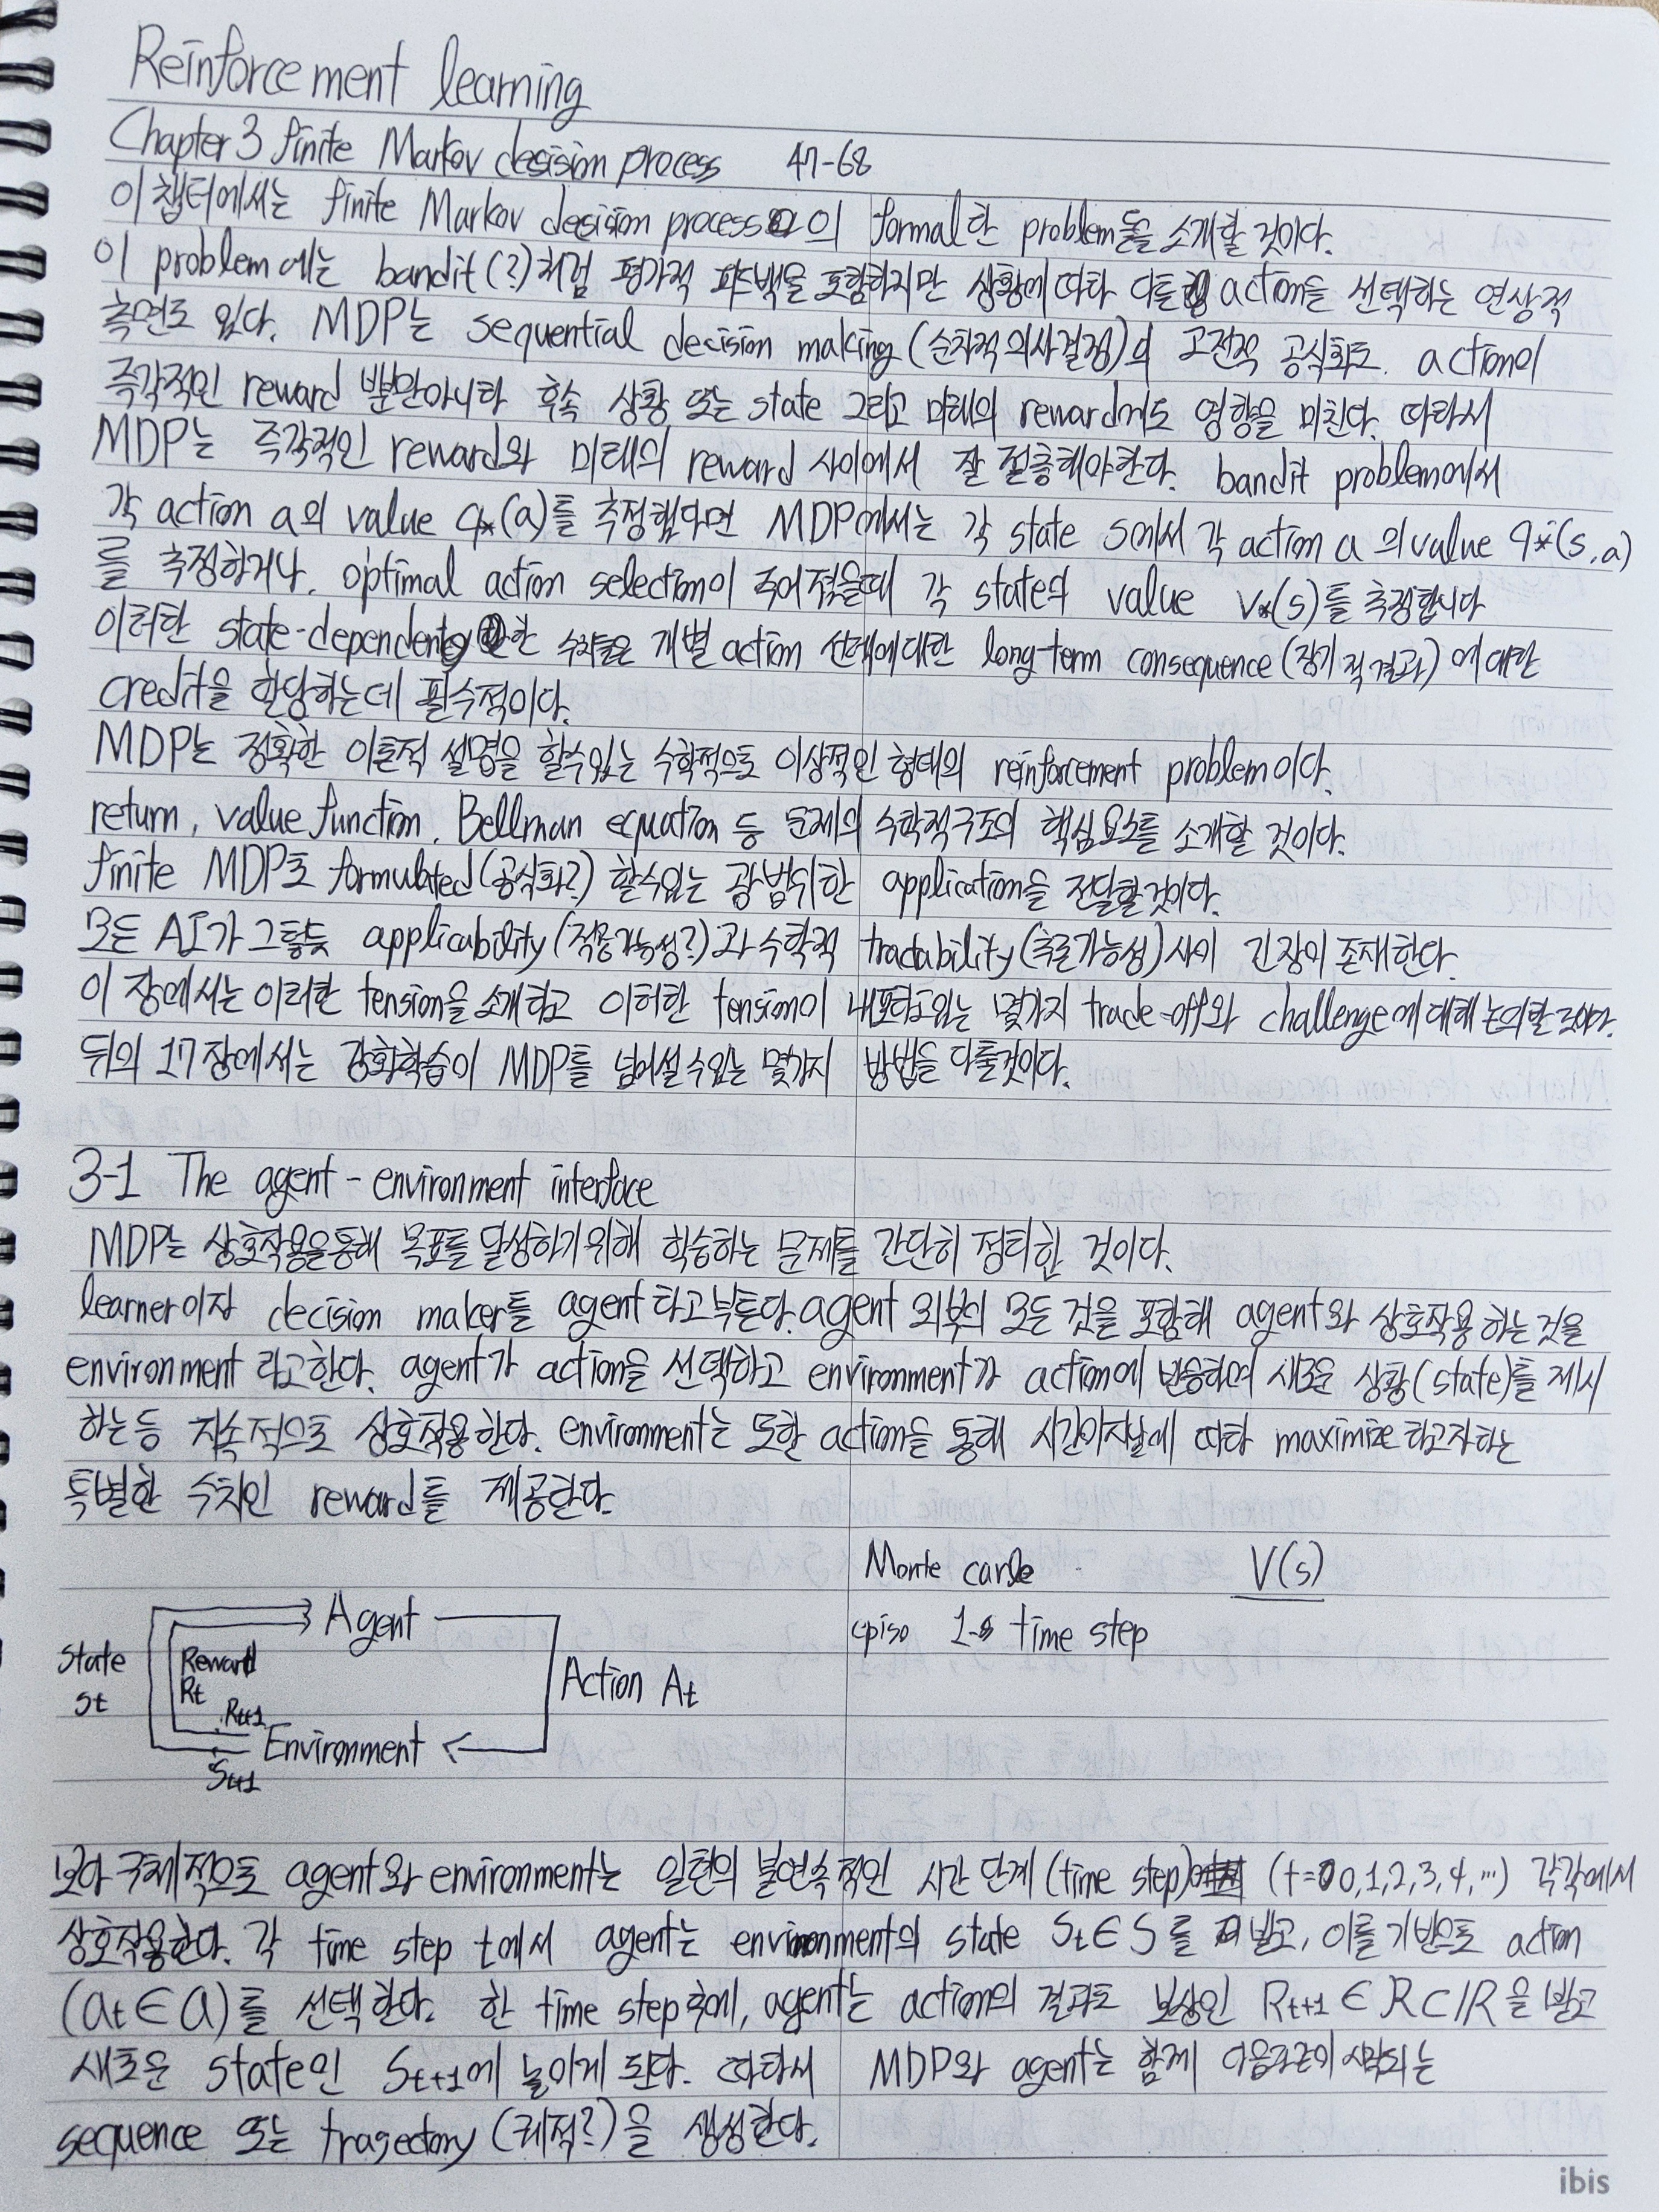 Reinforcement learning
Chapter 3 finite Markov decision process 47-68
이 챕터에서는 finite Markov decision process의 formal한 problem들을 소개할 것이다.
이 problem에는 bandit(?)처럼 평가적 피드백을 포함하지만 상황에 따라 다른 action을 선택하는 연상적
측면도 있다. MDP는 sequential decision making(순차적의사결정)의 고전적 공식화로. action이
즉각적인 reward 뿐만아니라 후속 상황 또는 state 그리고 미래의 reward에도 영향을 미친다. 따라서
MDP는 즉각적인 reward와 미래의 reward 사이에서 잘 절충해야한다. bandit problem에서
각 action a의 value q*(a)를 추정했다면 MDP에서는 각 state s에서 각 action a의 value q*(s,a)
를 추정하거나, optimal action selection이 주어졌을때 각 state의 value v*(s)를 추정합니다
이러한 state-dependent한 수치들은 개별 action 선택에대한 long-term consequence(장기적결과)에대한
credit을 할당하는데 필수적이다.
MDP는 정확한 이론적 설명을 할수있는 수학적으로 이상적인 형태의 reinforcement problem이다.
return, value function, Bellman equation 등 문제의 수학적구조의 핵심요소를 소개할 것이다.
finite MDP로 formulated(공식화?) 할수있는 광범위한 application을 전달할것이다.
모든 AI가 그렇듯 applicability(적용가능성?)과 수학적 tractability(추론가능성)사이 긴장이 존재한다.
이 장에서는 이러한 tension을 소개하고 이러한 tension이 내포하고있는 몇가지 trade-off와 challenge에 대해 논의할 것이다.
뒤의 17장에서는 강화학습이 MDP를 넘어설수있는 몇가지 방법을 다룰것이다.
3-1 The agent-environment interface
MDP는 상호작용을통해 목표를 달성하기위해 학습하는 문제를 간단히 정리한 것이다.
learner이자 decision maker를 agent라고부른다. agent 외부의 모든 것을 포함해 agent와 상호작용 하는것을
environment 라고한다. agent가 action을 선택하고 environment가 action에 반응하여 새로운 상황(state)를 제시
하는등 지속적으로 상호작용한다. environment는 또한 action을 통해 시간이지남에 따라 maximize 하고자하는
특별한 수치인 reward를 제공한다.
Monte carlo V(s)
episo 1-s time step
Agent
State
St
Reward
Rt
Action At
Rt+1
Environment
St+1
보다 구체적으로 agent와 environment는 일련의 불연속적인 시간 단계(time step) (t=0,1,2,3,4,...) 각각에서
상호작용한다. 각 time step t에서 agent는 environment의 state St∈S를 받고, 이를 기반으로 action
(at∈a)를 선택한다. 한 time step후에, agent는 action의 결과로 보상인 Rt+1∈R⊂ℝ을 받고
새로운 state인 St+1에 놓이게 된다. 따라서 MDP와 agent는 함께 다음과같이 시작되는
sequence 또는 tragectory(궤적?)을 생성한다.
ibis